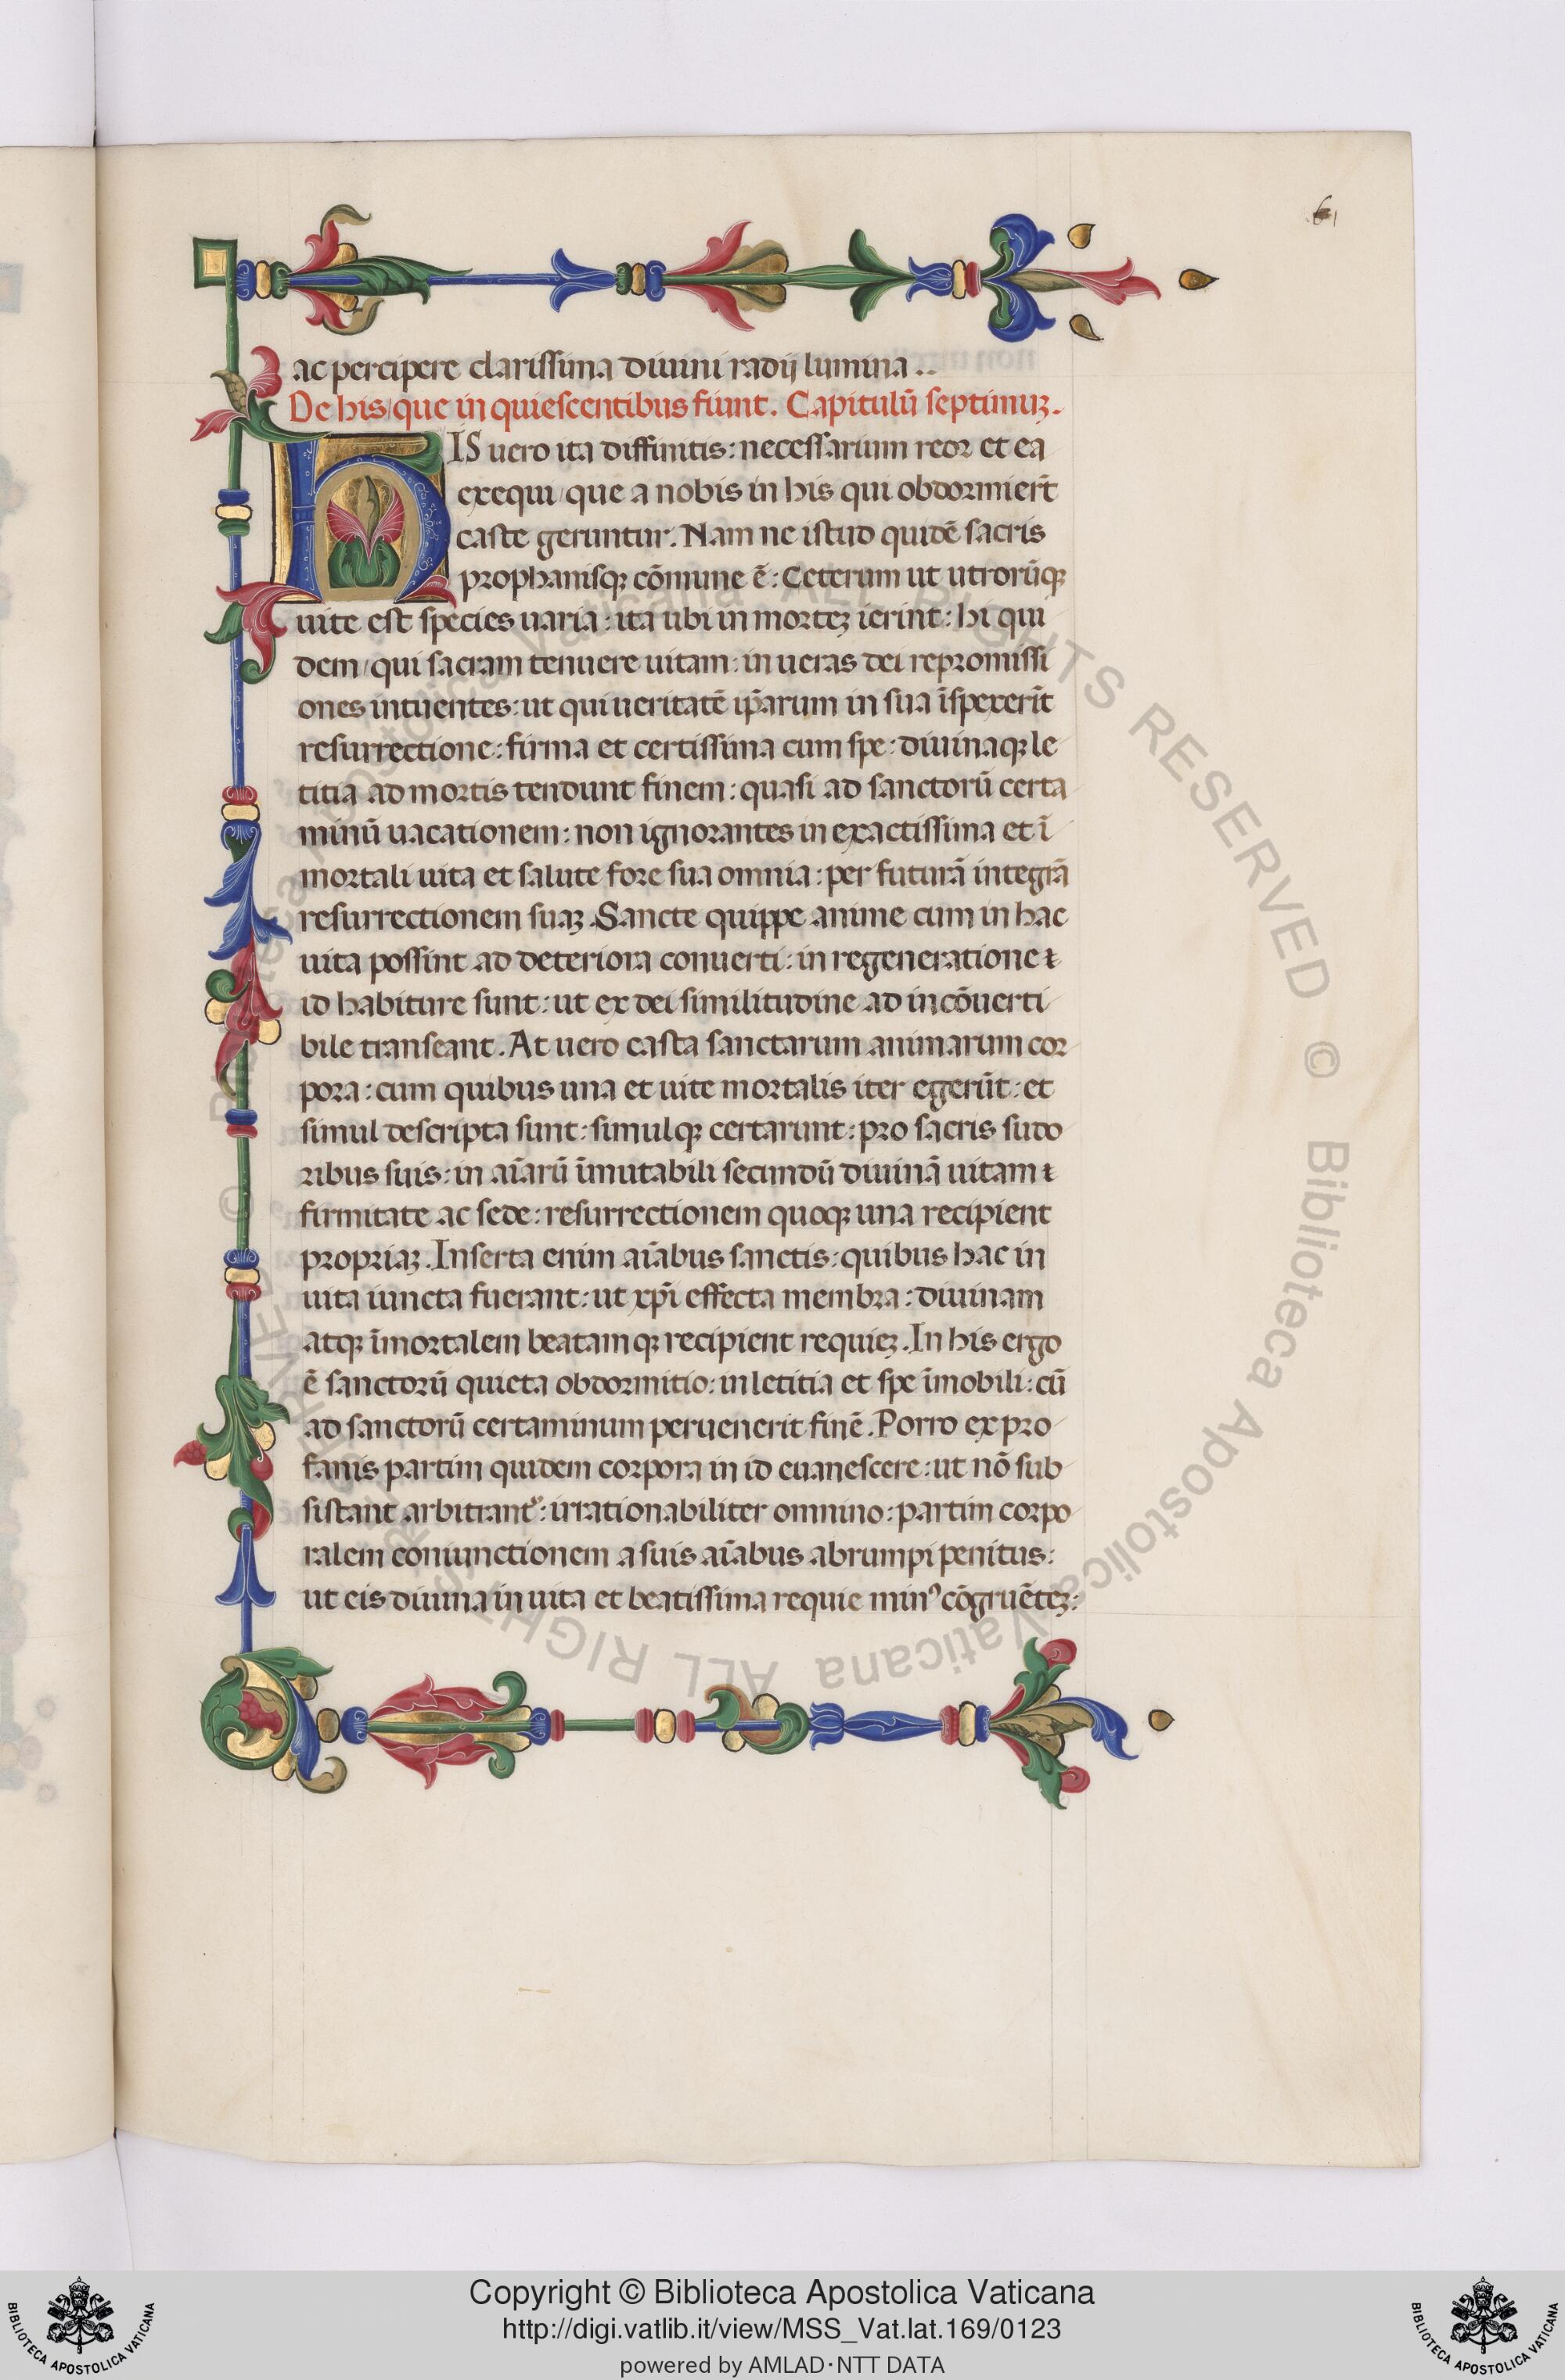 61
ac percipere clarissima diuini radij lumina..
De his/que in quiescentibus fiunt. Capitulũ septimuꝫ.
HIS uero ita diffinitis: necessarium reor et ea
exequi/que a nobis in his qui obdormierũt
caste geruntur. Nam ne istud quidẽ sacris
prophanisqꝫ cõmune ẽ: Ceterum ut utrorũqꝫ
uite est species uaria: ita ubi in morteꝫ ierint: hi qui
dem/qui sacram tenuere uitam: in ueras dei repromissi
ones intuentes: ut qui ueritatẽ ip̃arum in sua ĩspexerĩt
resurrectione: firma et certissima cum spe: diuinaqꝫ le
titia ad mortis tendunt finem: quasi ad sanctorũ certa
minũ uacationem: non ignorantes in exactissima et ĩ
mortali uita et salute fore sua omnia: per futurã integrã
resurrectionem suaꝫ. Sancte quippe anime cum in hac
uita possint ad deteriora conuerti: in regeneratione ⁊
id habiture sunt: ut ex dei similitudine ad incõuerti
bile transeant. At uero casta sanctarum animarum cor
pora: cum quibus una et uite mortalis iter egerũt: et
simul descripta sunt: simulqꝫ certarunt: pro sacris sudo
ribus suis: in aĩarũ ĩmutabili secundũ diuinã uitam ⁊
firmitate ac sede: resurrectionem quoqꝫ una recipient
propriaꝫ. Inserta enim aĩabus sanctis: quibus hac in
uita iuncta fuerant: ut xp̃i effecta membra: diuinam
atqꝫ ĩmortalem beatamqꝫ recipient requieꝫ. In his ergo
ẽ sanctorũ quieta obdormitio: in letitia et spe ĩmobili: cũ
ad sanctorũ certaminum peruenerit finẽ. Porro ex pro
fanis partim quidem corpora in id euanescere: ut nõ sub
sistant arbitrant᷑: irrationabiliter omnino: partim corpo
ralem coniunctionem a suis aĩabus abrumpi penitus:
ut eis diuina in uita et beatissima requie minꝰ cõgruẽteꝫ:
© Biblioteca Apostolica Vaticana ALL RIGHTS RESERVED © Biblioteca Apostolica Vaticana ALL RIGHTS RESERVED
Copyright © Biblioteca Apostolica Vaticana
http://digi.vatlib.it/view/MSS_Vat.lat.169/0123
powered by AMLAD·NTT DATA
BIBLIOTECA APOSTOLICA VATICANA
BIBLIOTECA APOSTOLICA VATICANA